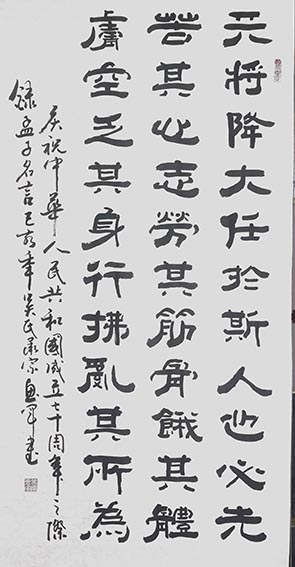 天将降大任於斯人也必先
苦其心志勞其筋骨餓其體
膚空乏其身行拂亂其所為
庆祝中華人民共和國成立七十周年之際
録孟子名言己亥年吴氏